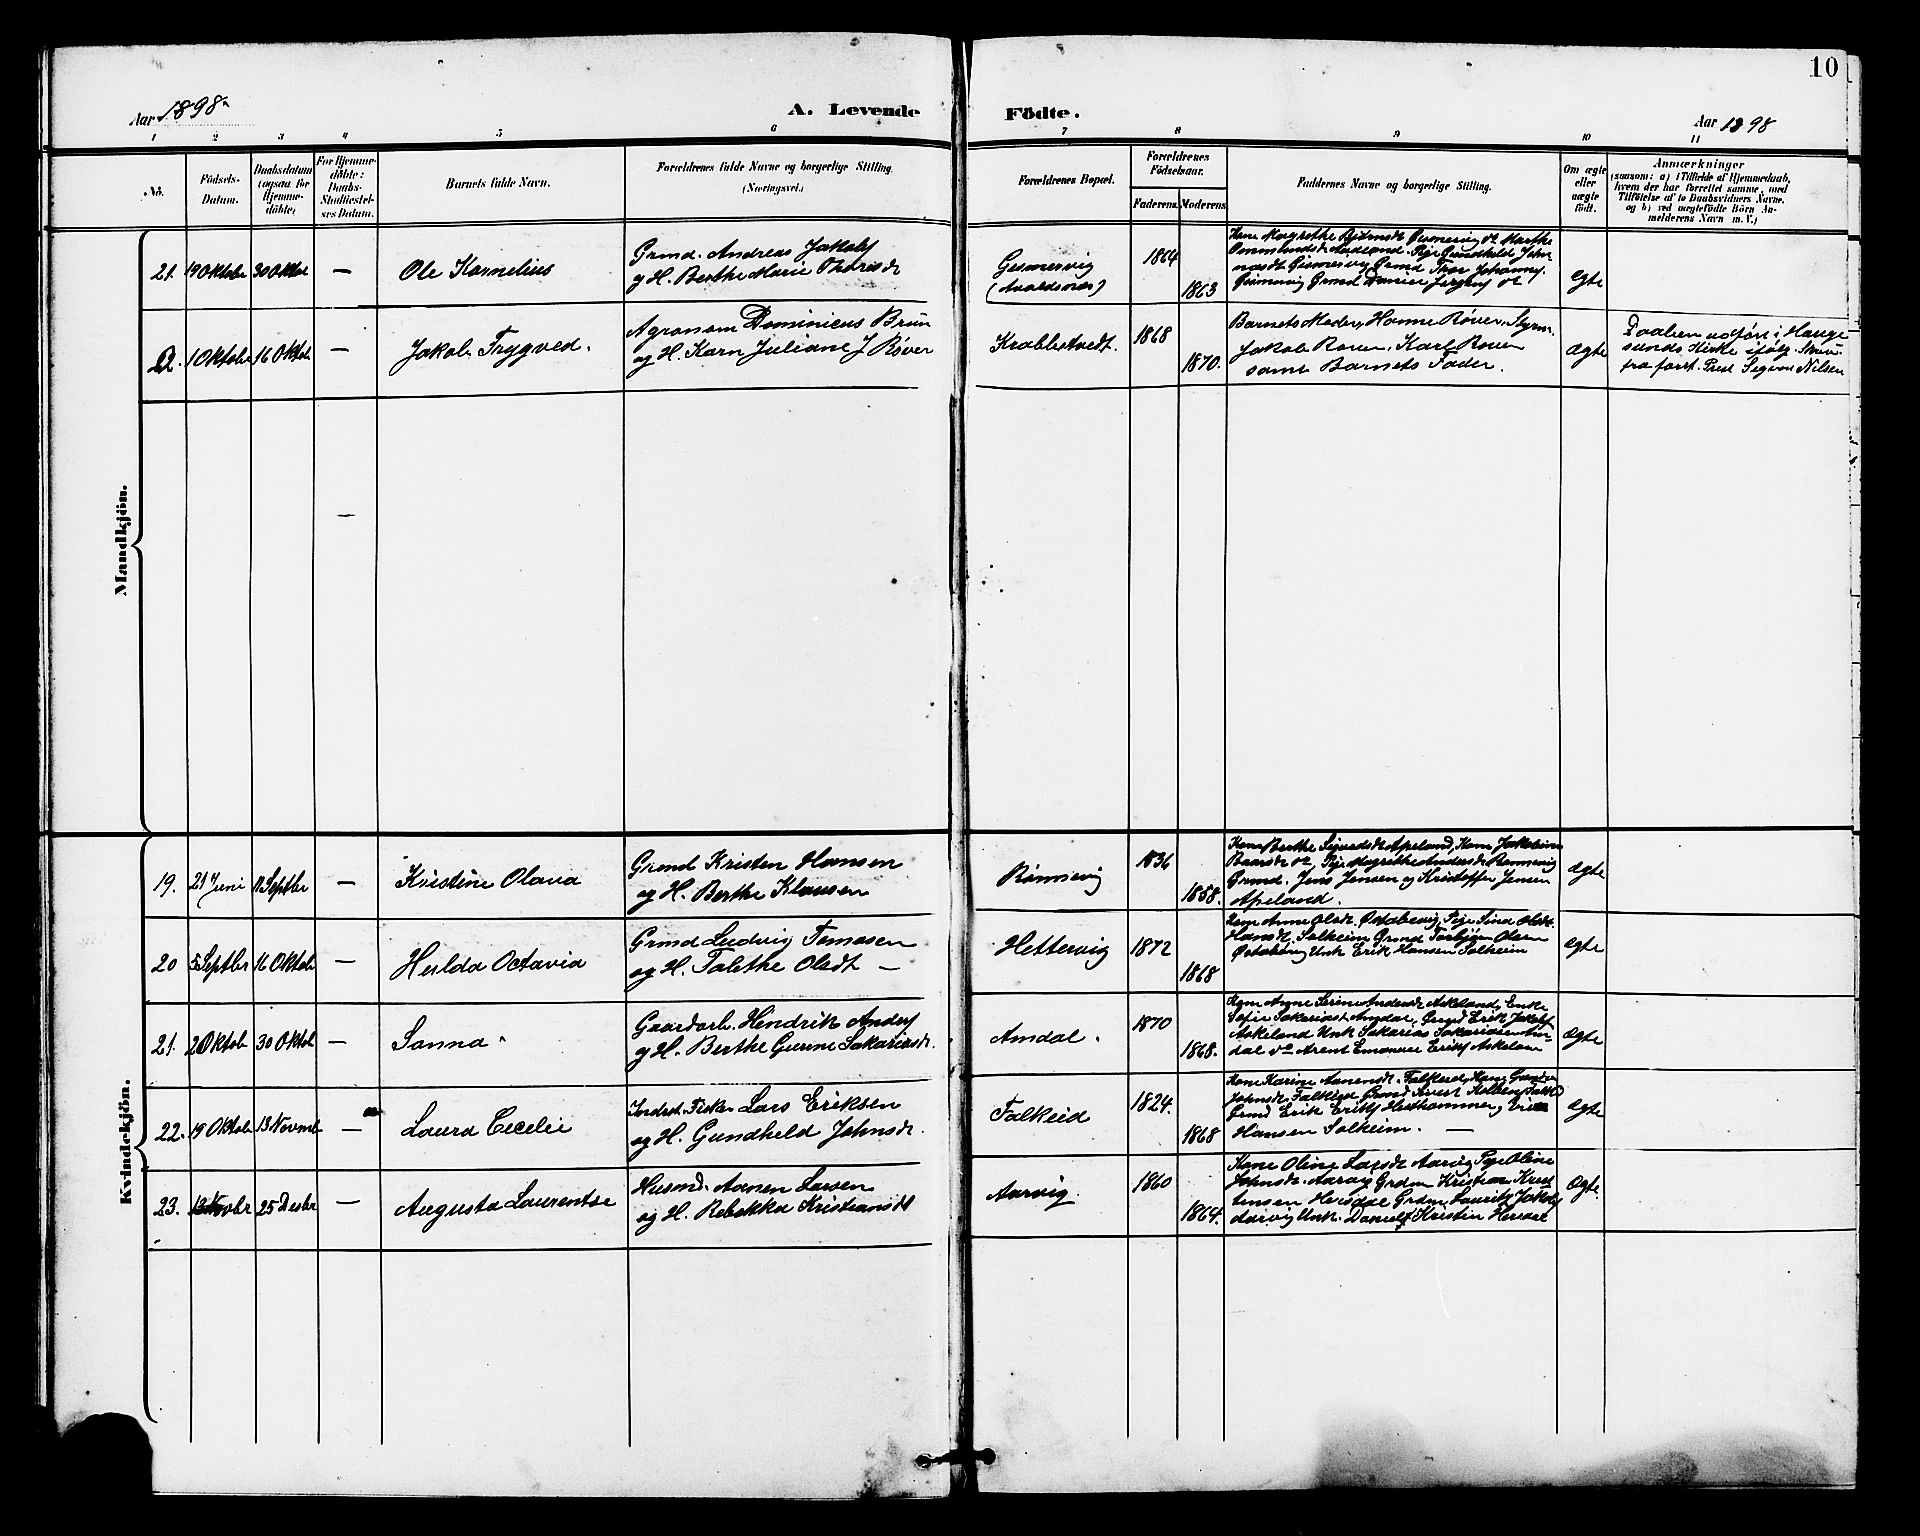 10
Aar 1898.
A. Levende Födte.
Aar 1898
1 2 3 4 5 6 7 8 9 10 11
No.
Födsels-
Datum.
Daabsdatum
(ogsaa for
Hjemme-
döbte)
For Hjemme-
döbte:
Daabs-
Stadfæstel-
ses Datum.
Barnets fulde Navn.
Forældrenes fulde Navne og borgerlige Stilling.
(Næringsvei.)
Forældrenes Bopæl.
Forældrenes
Födselsaar.
Faderens. Moderens.
Faddernes Navne og borgerlige Stilling.
Om ægte
eller
uægte
födt.
Anmærkninger
(saasom: a) i Tilfælde af Hjemmedaab,
hvem der har forrettet samme, med
Tilföielse af to Daabsvidners Navne,
og b) ved uægtefödte Börn An-
melderens Navn m. V.)
Mandkjön.
21. 19 Oktobr 30 Oktob — Ole Kornelius
Grmd. Andreas Jakobs
og H. Berthe Marie Thorsdt
Geismervig
(Avaldsnæs)
1864
1863
Kone Margrethe Bjørnsdt Geismervig do Marthe
Ommundsdt Aadland. Pige Gundhild John
Geismervig Grmd Thor Johannes
Geismervig Grmd
egte
1 Oktobr 16 Oktob — Jakob Trygved.
Agronom Dominicus Brun
og H. Karn Juliane J Røver
Krabbestvedt.
1868
1870.
Barnets Moder, Hanne Røver, Styrm.
Jakob Røver, Karl Røver
samt Barnets Fader.
ægte
Daaben udført i Hauge
sunds Kirke ifølg. Skriv.
fra forst. Prest Nilsen
—
Kvindekjön.
19. 21 Juni 11 Septbr — Kristine Olava
Grmd Kristen Hansen
og H. Berthe Klausen
Rønnevig
1836
1858.
Kone Berthe Sigvardsdt Apeland, Kone
Baarsdt do Pige Margrethe Andersdt Rønnevig
Grmd. Jens Jensen og Kristoffer Jensen
Apeland.
ægte
20 5 Septbr 16 Oktob — Hulda Octavia
Grmd Ludvig Tomasen
og H. Talethe Olsdt —
Hettervig
1872
1868
Kone Anne Olsdt. Østabøvig, Pige Sina Olsdt
Hansdt Solheim Grmd Torbjørn Olsen
Østabøvig Unk Erik Hansen Solheim
egte
21. 2 Oktob 30 Oktob — Sanna
Gaardarb. Hendrik Anders
og H. Berthe Gurine Sakariasdt.
Amdal.
1870
1868.
Kone Anne Serine Andersdt Askeland, Enke
Sofie Sakariasdt Amdal, Grmd Erik Jakobs
Askeland Unk Sakarias Sakariasen Am-
dal do Arent Emanuel Eriks Askeland
ægte
22. 19 Oktobr 13 Novmb — Laura Cecelie
Indrst. Fisker Lars Eriksen
og H. Gundheld Johnsdt.
Falkeid
1824.
1868
Kone Karine Aanensdt. Falkeid, Kone
Johnsdt Falkeid Grmd Sivert
Grmd Erik Eriks Hesthammer og
Hansen Solheim. —
ægte
23. 13 Novbr 25 Desbr — Augusta Laurentse
Husmd. Aanen Larsen
og H. Rebekka Kristiansdt
Aarvig.
1860
1864.
Kone Oline Larsdt Aarvig Pige Oline
Johnsdt. Aarvig Grdm Kristian Krist
ensen Hersdal Grdm. Laurits Jakobs
Aarvig Unk. Daniel Kristin
Ægte.